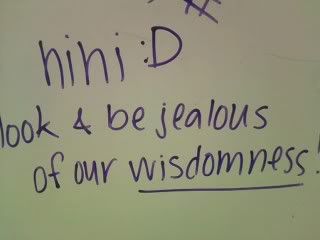 hihi :D
look & be jealous
of our wisdomness!